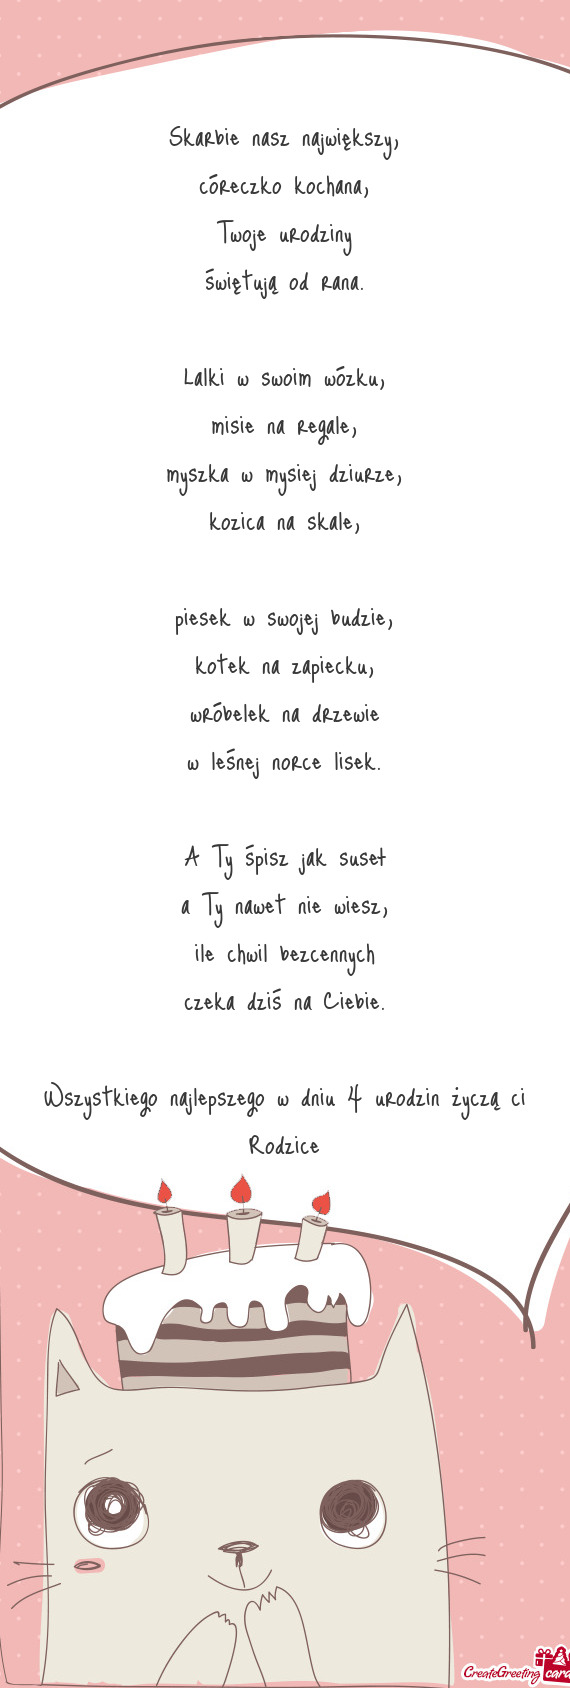 Skarbie nasz największy,
córeczko kochana,
Twoje urodziny
świętują od rana.
Lalki w swoim wózku,
misie na regale,
myszka w mysiej dziurze,
kozica na skale,
piesek w swojej budzie,
kotek na zapiecku,
wróbelek na drzewie
w leśnej norce lisek.
A Ty śpisz jak suseł
a Ty nawet nie wiesz,
ile chwil bezcennych
czeka dziś na Ciebie.
Wszystkiego najlepszego w dniu 4 urodzin życzą ci
Rodzice
CreateGreeting